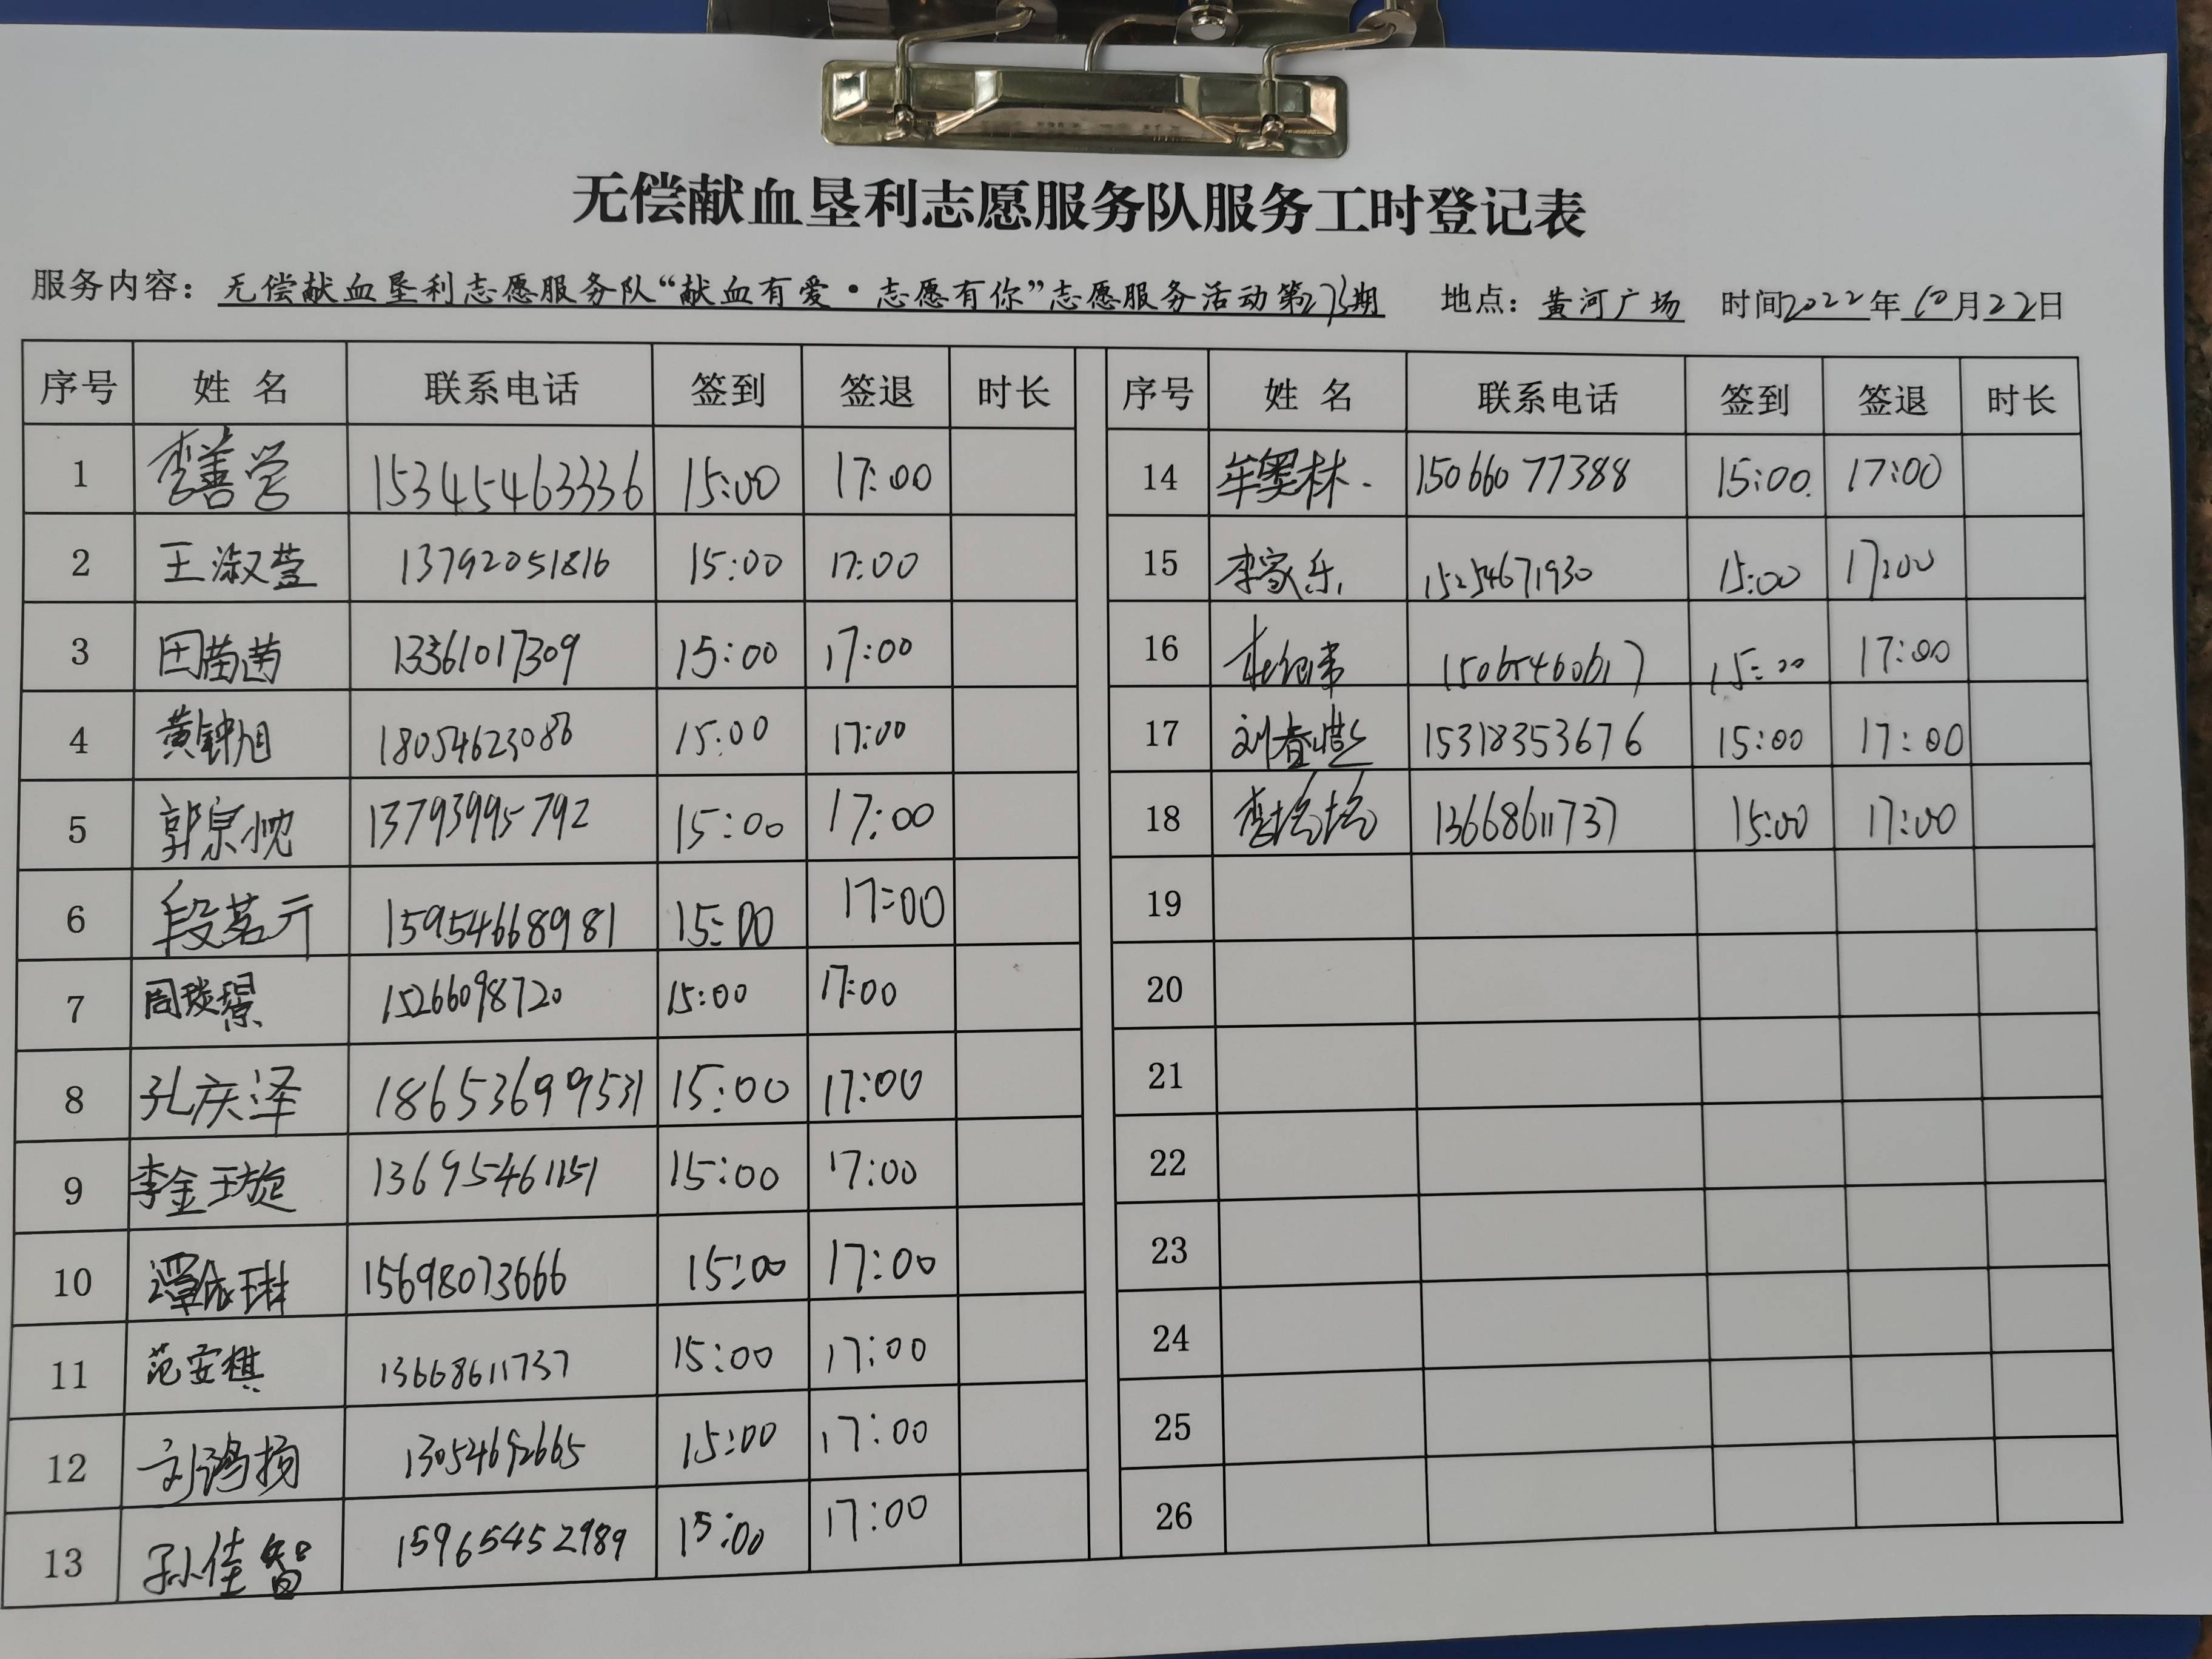 无偿献血垦利志愿服务队服务工时登记表
服务内容：无偿献血垦利志愿服务队“献血有爱·志愿有你”志愿服务活动第273期 地点：黄河广场 时间2022年10月22日
序号 姓名 联系电话 签到 签退 时长 序号 姓名 联系电话 签到 签退 时长
1 李善学 15345463336 15:00 17:00 14 牟奥林 15066077388 15:00 17:00
2 王淑萱 13792051816 15:00 17:00 15 李家乐 15254671930 15:00 17:00
3 田苗茜 13361017309 15:00 17:00 16 15065460617 15:00 17:00
4 黄钟旭 18054623086 15:00 17:00 17 刘春 15318353676 15:00 17:00
5 郭宗忱 13793995792 15:00 17:00 18 李 13668611737 15:00 17:00
6 段茗亓 15954668981 15:00 17:00 19
7 周琰璟 15266098720 15:00 17:00 20
8 孔庆泽 18653699531 15:00 17:00 21
9 李金璇 13695461151 15:00 17:00 22
10 谭依琳 15698073666 15:00 17:00 23
11 范安棋 13668611737 15:00 17:00 24
12 刘鸿扬 13054692665 15:00 17:00 25
13 孙佳智 15965452989 15:00 17:00 26